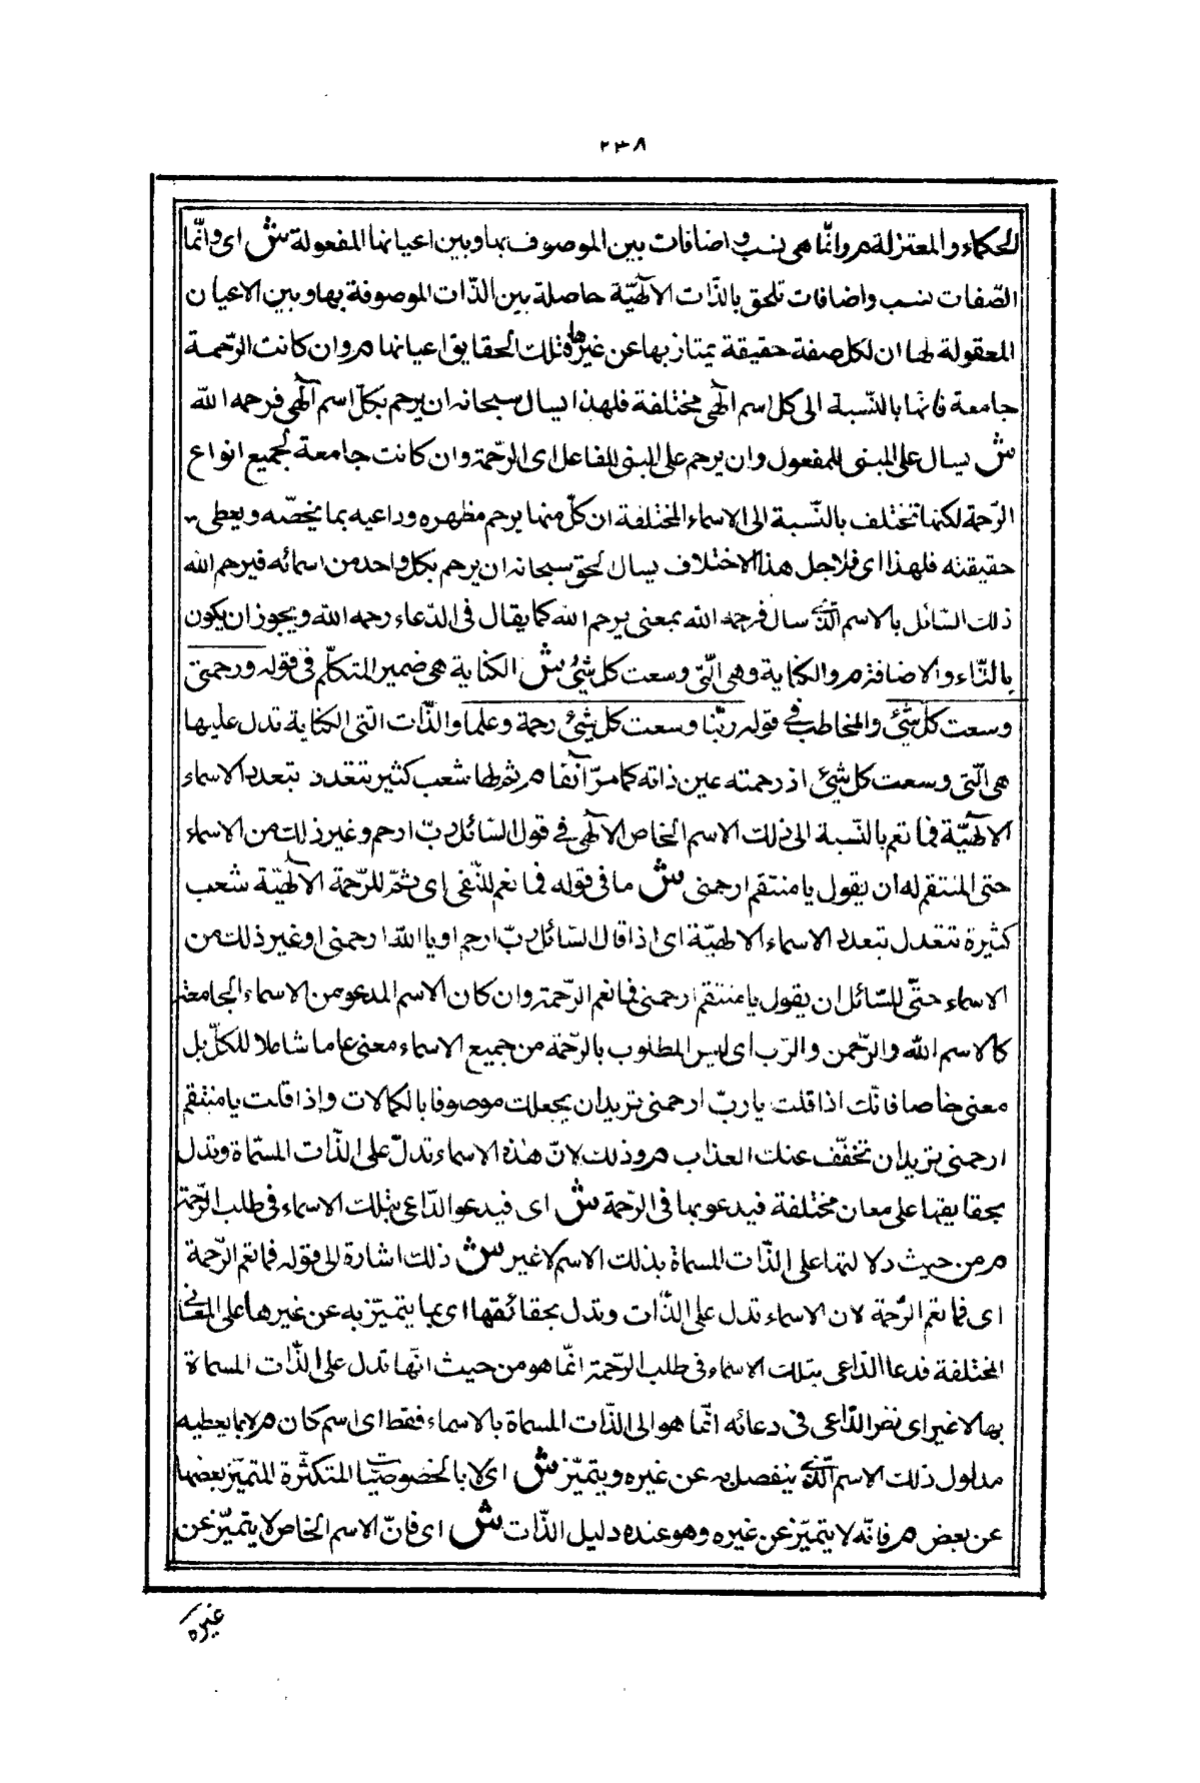 ٢٣٨
الحكماء والمعتزلة م وانّما هى نسب واضافات بين الموصوف بها وبين اعيانها المفعولة ش اى وانّما
الصّفات نسب واضافات تلحق بالذّات الالٓهيّة حاصلة بين الذّات الموصوفة بها وبين الاعيان
المعقولة لها ان لكل صفة حقيقة يمتاز بها عن غيرها وتلك الحقايق اعيانها م وان كانت الرّحمة
جامعة فانّها بالنّسبة الى كل اسم الٓهى مختلفة فلهذا يسال سبحانه ان يرحم بكلّ اسم الٓهى فرحمه الله
ش يسال على المبنى للمفعول وان يرحم على المبنى للفاعل اى الرّحمة وان كانت جامعة لجميع انواع
الرّحمة لكنها تختلف بالنّسبة الى الاسماء المختلفة ان كلّ منها يرحم مظهره وداعيه بما يخصّه ويعطى
حقيقته فلهذا اى فلاجل هذا الاختلاف يسال لحق سبحانه ان يرحم بكل واحد من اسمائه فيرحم الله
ذلك السّائل بالاسم الّذى سال فرحمه الله بمعنى يرحم الله كما يقال فى الدّعاء رحمه الله ويجوز ان يكون
بالتّاء والاضافة م والكناية وهى الّتى وسعت كل شئ ش الكناية هى ضمير المتكلّم فى قوله ورحمتى
وسعت كل شئ والمخاطب فى قوله ربّنا وسعت كل شئ رحمة وعلما والذّات التى الكناية تدل عليها
هى الّتى وسعت كل شئ اذ رحمته عين ذاته كما مرّ آنفا م ثم لها شعب كثير تتعدد بتعدد الاسماء
الالٓهيّة فما تعم بالنّسبة الى ذلك الاسم الخاص الالٓهى فى قول السّائل ربّ ارحم وغير ذلك من الاسماء
حتى المنتقم له ان يقول يا منتقم ارحمنى ش ما فى قوله فما تعم للنّفى اى ثمّ للرّحمة الالٓهيّة شعب
كثيرة تتعدد بتعدد الاسماء الالهيّة اى اذا قال السّائل ربّ ارحم او يا اللّه ارحمنى او غير ذلك من
الاسماء حتّى للسّائل ان يقول يا منتقم ارحمنى فما تعم الرّحمة وان كان الاسم المدعو من الاسماء الجامعة
كالاسم الله والرّحمن والرّب اى ليس المطلوب بالرّحمة من جميع الاسماء معنى عاما شاملا للكلّ بل
معنى خاصا فانّك اذا قلت يا ربّ ارحمنى تريد ان يجعلك موصوفا بالكمالات واذا قلت يا منتقم
ارحمنى تريد ان تخفّف عنك العذاب م وذلك لانّ هٰذه الاسماء تدلّ على الذّات المسمّاة وتدل
بحقايقها على معان مختلفة فيدعو بها فى الرّحمة ش اى فيدعو الدّاعى بتلك الاسماء فى طلب الرّحمة
م من حيث دلالتها على الذّات المسماة بذلك الاسم لا غير ش ذلك اشارة الى قوله فما تعم الرّحمة
اى فما تعم الرّحمة لان الاسماء تدل على الذّات وتدل بحقائقها اى بما يتميّز به عن غيرها على المعانى
المختلفة فدعا الدّاعى بتلك الاسماء فى طلب الرّحمة انّما هو من حيث انّها تدل على الذّات المسماة
بها لا غير اى نظر الدّاعى فى دعائه انّما هو الى الذّات المسماة بالاسماء فقط اى اسم كان م لا بما يعطيه
مدلول ذلك الاسم الّذى ينفصل به عن غيره ويتميّز ش اى لا بالخصوصيّات المتكثّرة المتميّز بعضها
عن بعض م فانّه لا يتميّز عن غيره وهو عنده دليل الذّات ش اى فانّ الاسم الخاص لا يتميّز عن
غيره